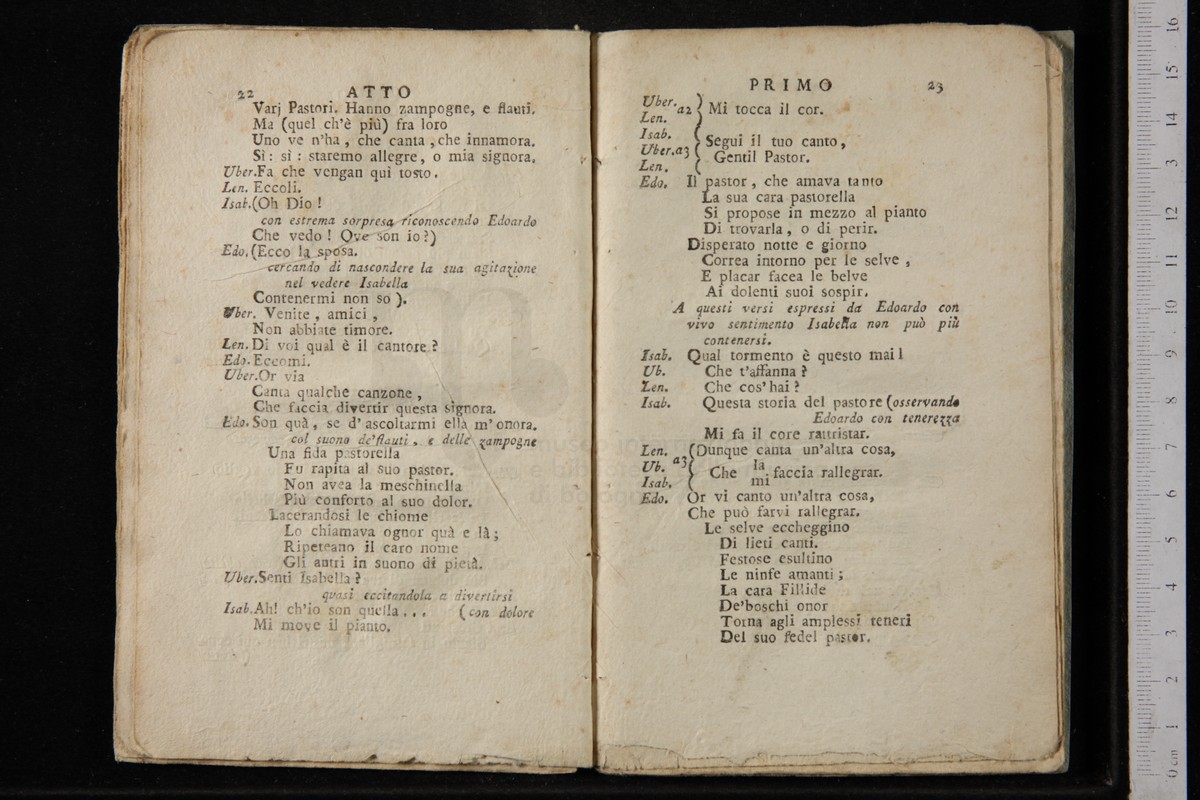 22 ATTO
Varj Pastori. Hanno zampogne, e flauti.
Ma (quel ch'è più) fra loro
Uno ve n'ha, che canta, che innamora.
Sì: sì: staremo allegre, o mia signora.
Uber. Fa che vengan quì tosto.
Len. Eccoli.
Isab. (Oh Dio!
con estrema sorpresa riconoscendo Edoardo
Che vedo! Ove son io?)
Edo. (Ecco la sposa.
cercando di nascondere la sua agitazione
nel vedere Isabella
Contenermi non so).
Uber. Venite, amici,
Non abbiate timore.
Len. Di voi qual è il cantore?
Edo. Eccomi.
Uber. Or via
Canta qualche canzone,
Che faccia divertir questa signora.
Edo. Son quà, se d'ascoltarmi ella m'onora.
col suono de'flauti, e delle zampogne
Una fida pastorella
Fu rapita al suo pastor.
Non avea la meschinella
Più conforto al suo dolor.
Lacerandosi le chiome
Lo chiamava ognor quà e là;
Ripeteano il caro nome
Gli antri in suono di pietà.
Uber. Senti Isabella?
quasi eccitandola a divertirsi
Isab. Ah! ch'io son quella... (con dolore
Mi move il pianto.
PRIMO 23
Uber. a2 Mi tocca il cor.
Len.
Isab.
Uber. a3 Segui il tuo canto,
Len. Gentil Pastor.
Edo. Il pastor, che amava tanto
La sua cara pastorella
Si propose in mezzo al pianto
Di trovarla, o di perir.
Disperato notte e giorno
Correa intorno per le selve,
E placar facea le belve
Ai dolenti suoi sospir.
A questi versi espressi da Edoardo con
vivo sentimento Isabella non può più
contenersi.
Isab. Qual tormento è questo mai!
Ub. Che t'affanna?
Len. Che cos'hai?
Isab. Questa storia del pastore (osservando
Edoardo con tenerezza
Mi fa il core rattristar.
Len. (Dunque canta un'altra cosa,
Ub. a3 Che la faccia rallegrar.
Isab. mi
Edo. Or vi canto un'altra cosa,
Che può farvi rallegrar.
Le selve eccheggino
Di lieti canti.
Festose esultino
Le ninfe amanti;
La cara Fillide
De'boschi onor
Torna agli amplessi teneri
Del suo fedel pastor.